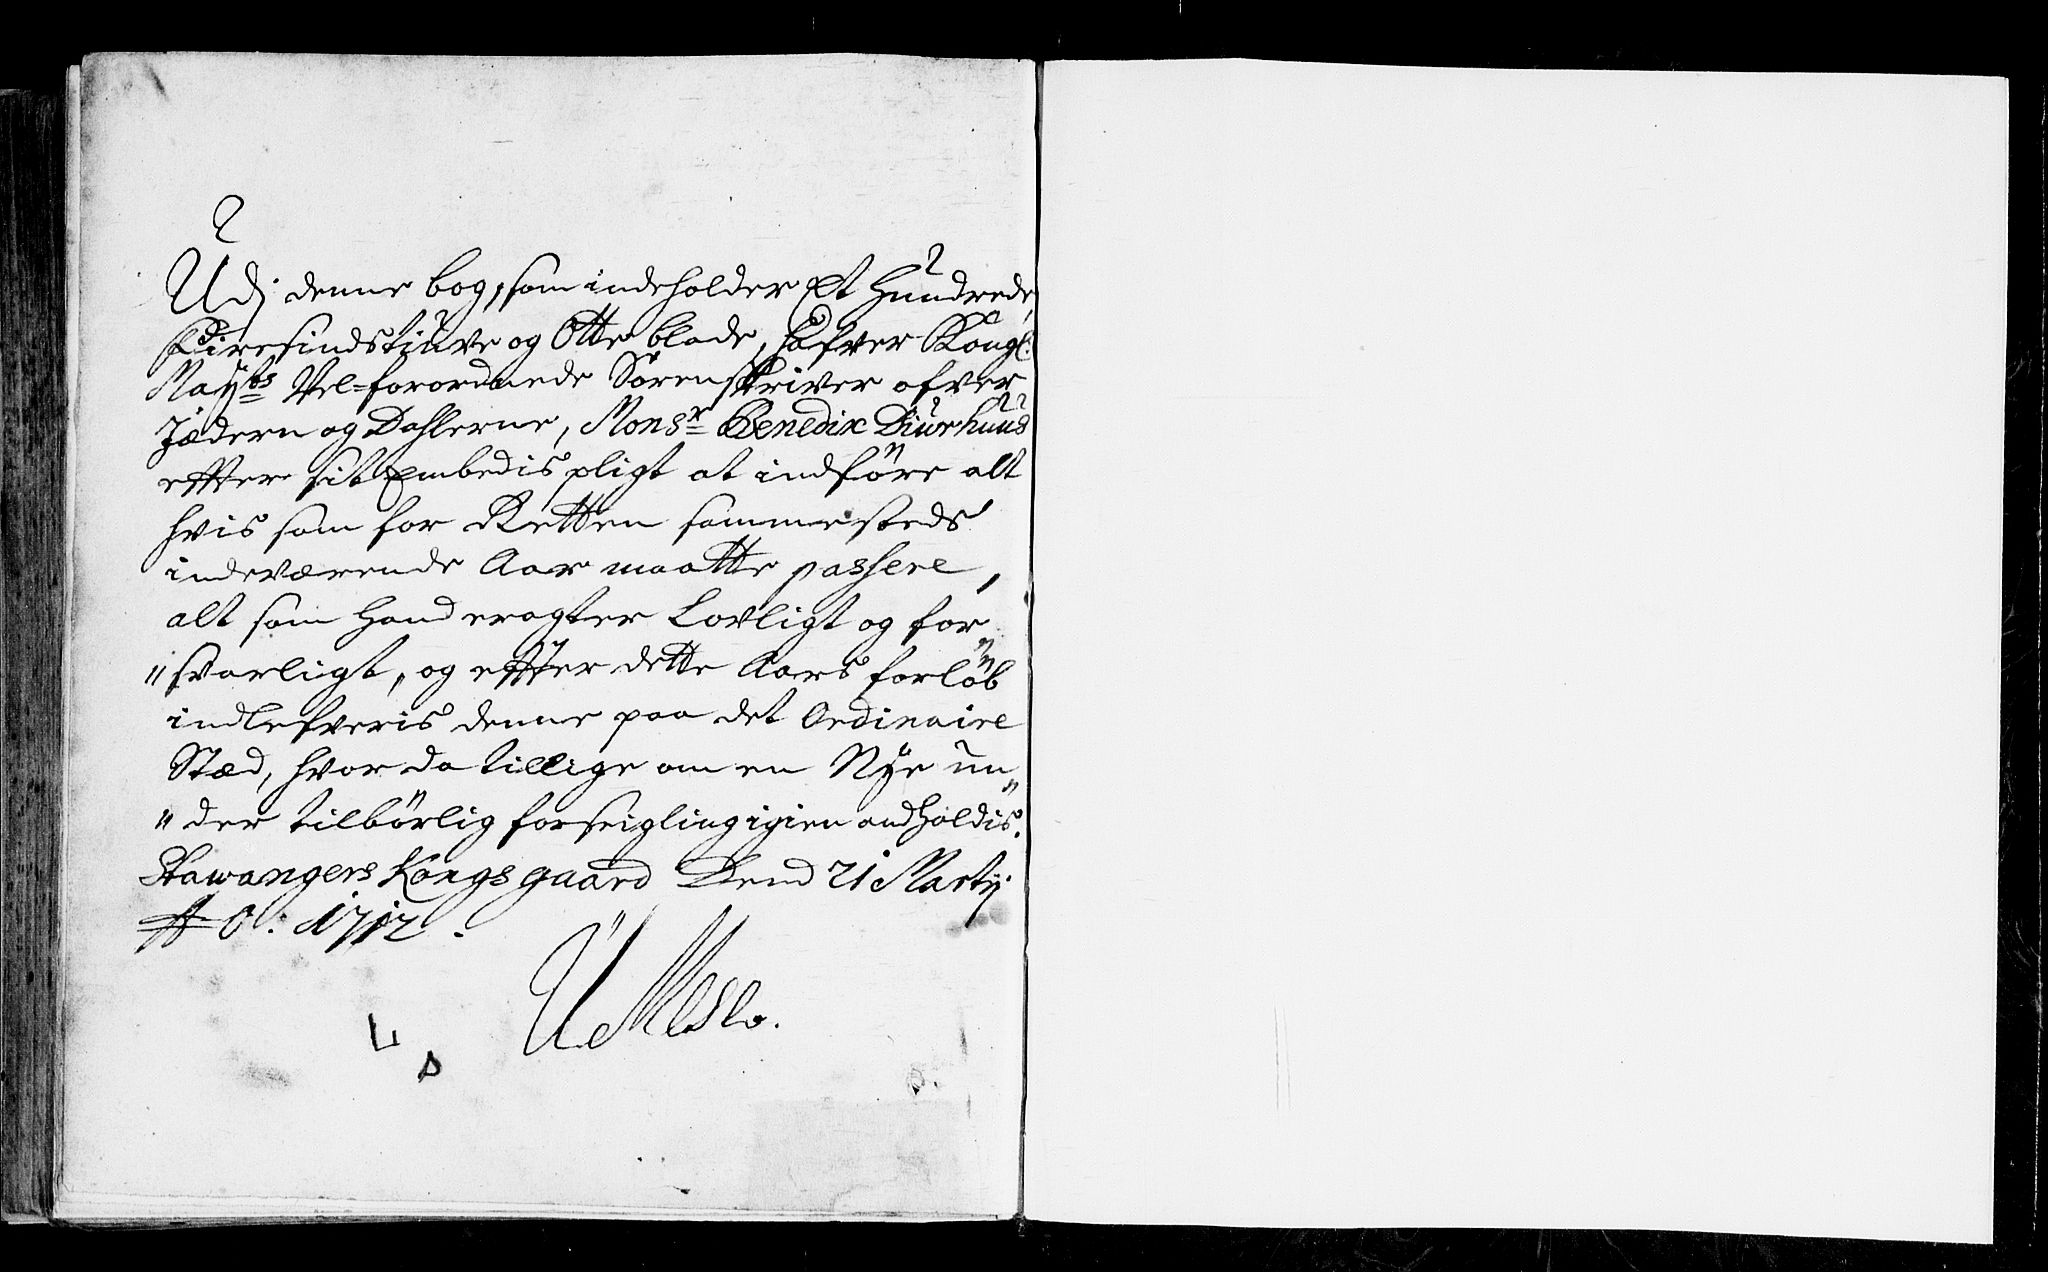 Udj denne bog, som indeholder Et Hundrede,
Firesindstiuve og Otte blade, hafver Kongl:
Mayts Vel=forordnede Sörenskriver ofver
Jædern og Dahlerne, Monsr Benedix Diurhuus
efter sit Embedis pligt at indföre alt
hvis som for Retten sammesteds
indeværende Aar maatte passere,
alt som hand eragter Lovligt og for
"svarligt, og efter dette Aars forlöb
indlefveris denne paa det Ordinaire
Stæd, hvor da tillige om en Nye un"
"der tilbörlig forseigling igien andholdis.
Stawangers Kongsgaard Dend 21 Martij.
Ao: 1712.
L
S